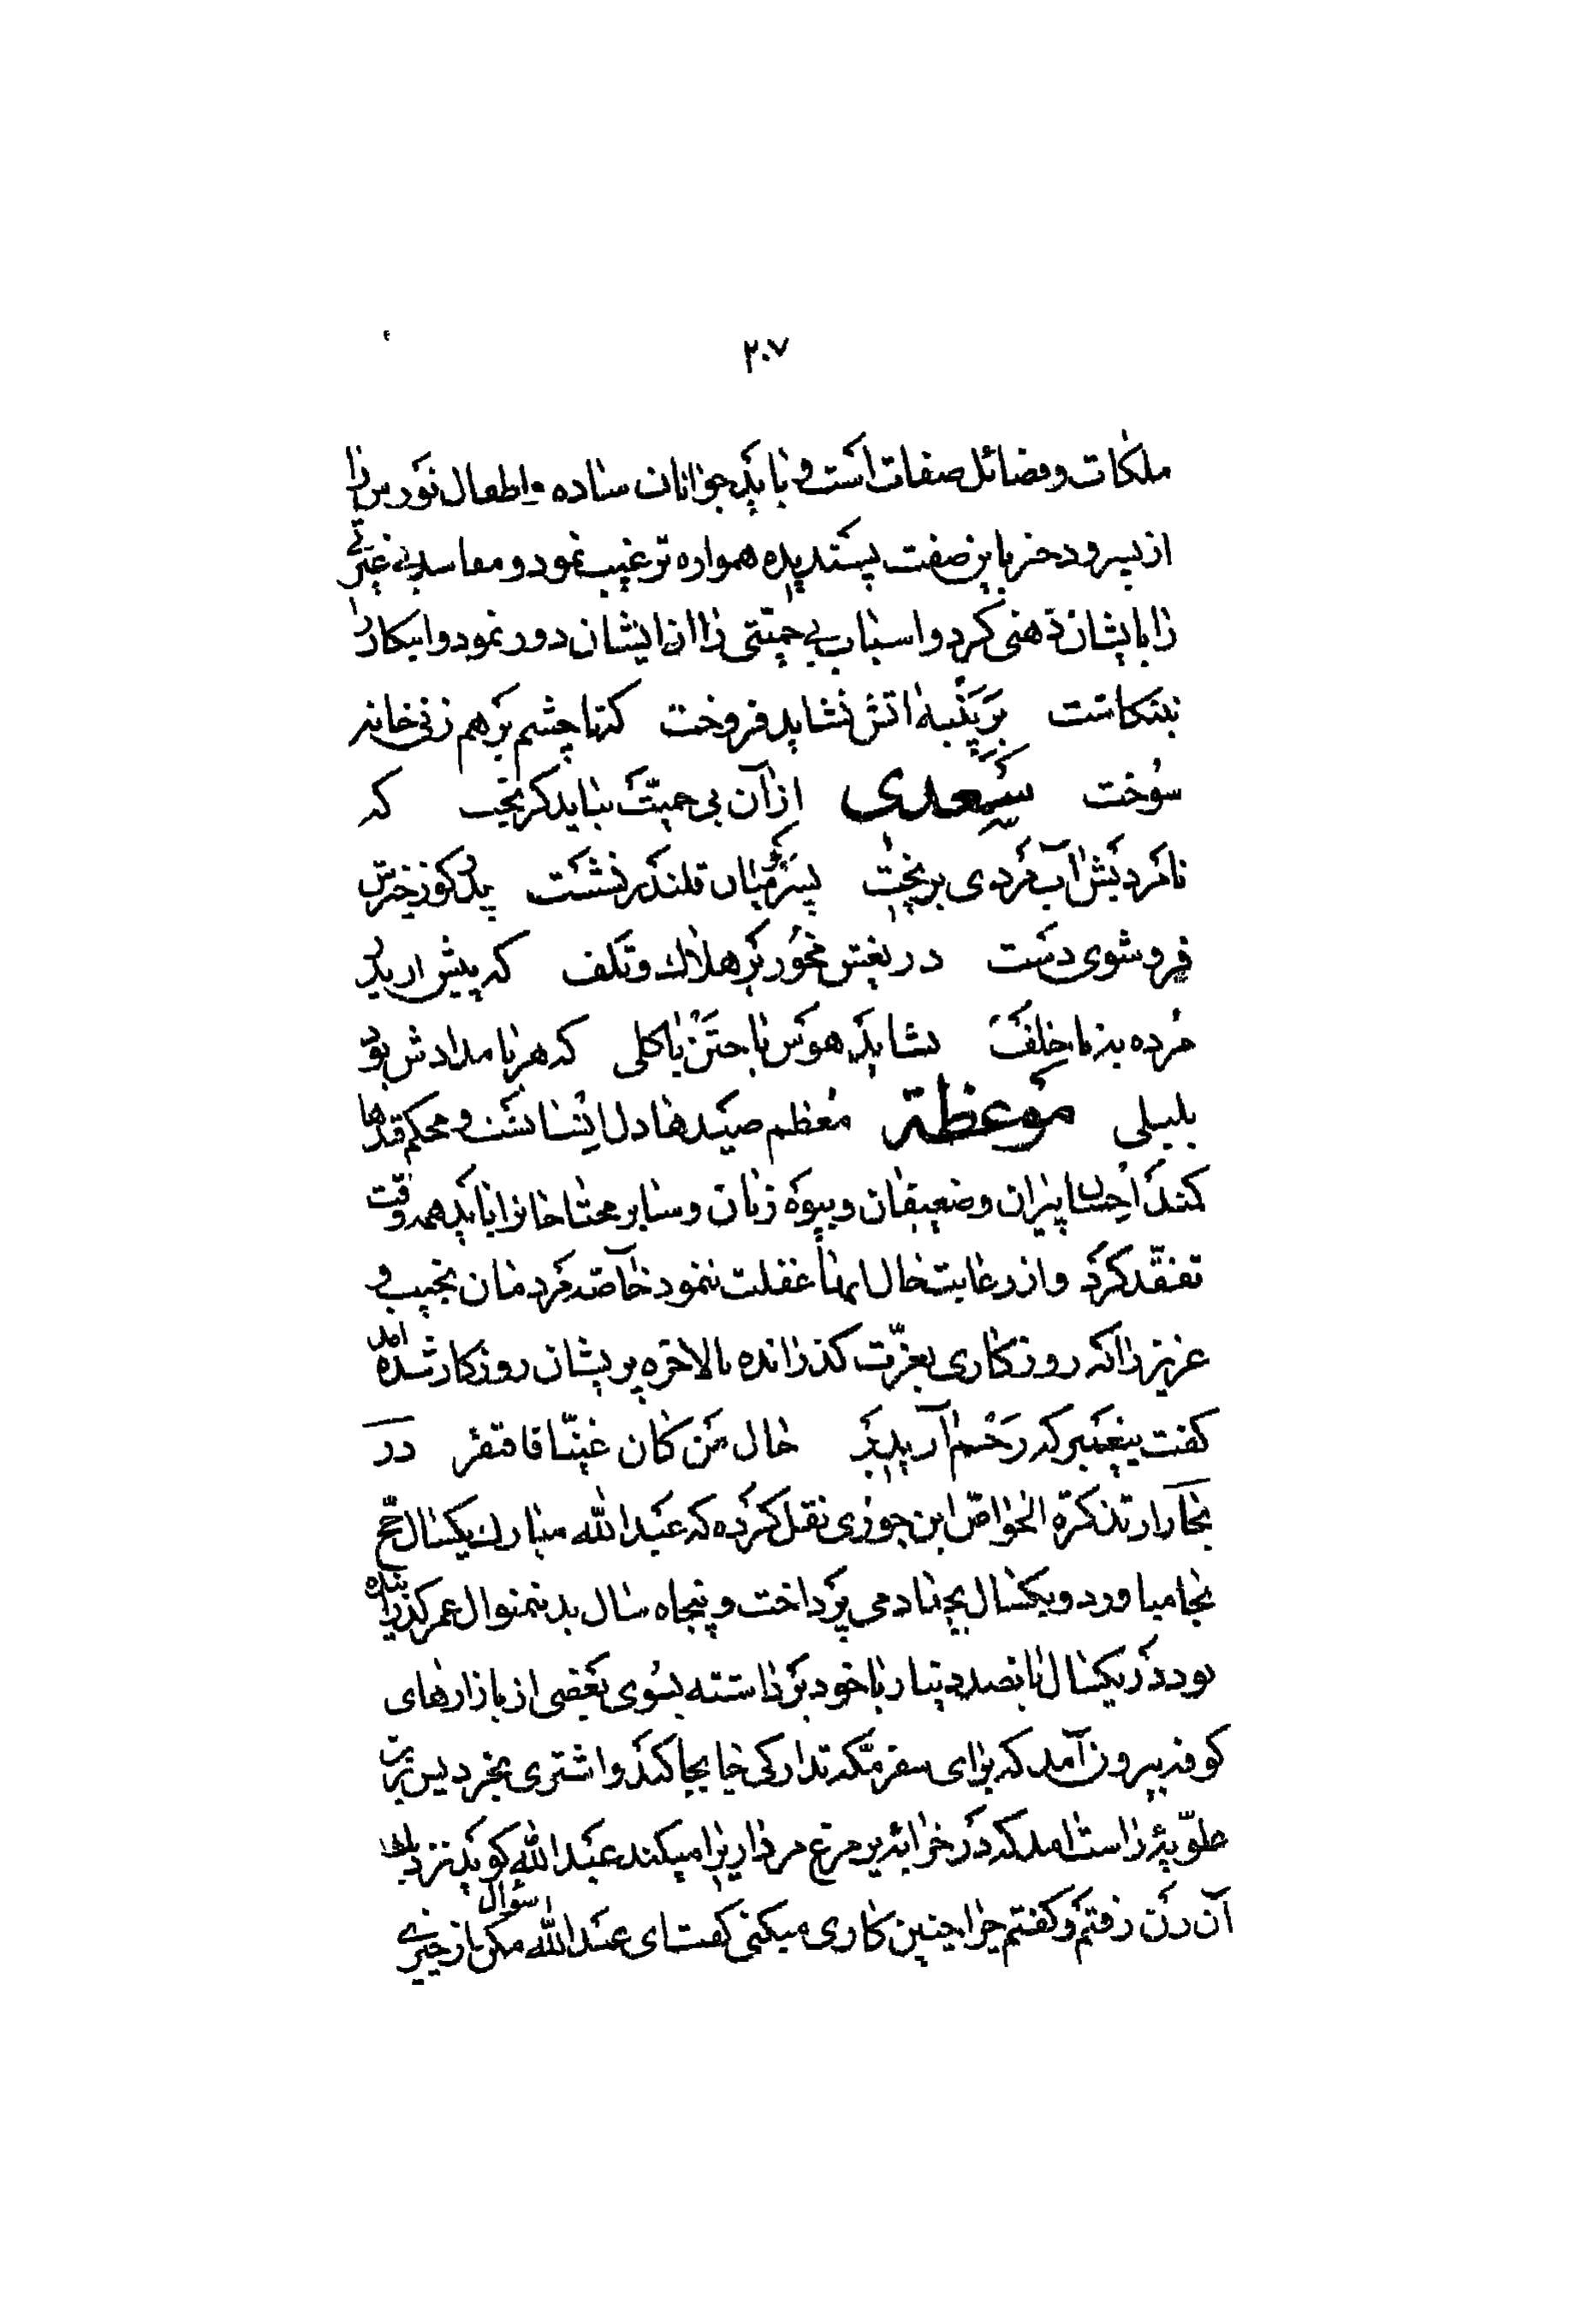 ۲۰۷
ملکات و فضائل صفات است و باید جوانان ساده و اطفال نورس را
از پسر و دختر باین صفت پسندیده همواره ترغیب نمود و مفاسد بی غیرتی
را بایشان ذهنی کرد و اسباب بی حمیتی را از ایشان دور نمود و اینکار را
نبتکاست بر پنبه اتش نشاید فروخت که تا چشم بر هم زنی خانه
سوخت سعدی از آن بی حمیت بباید گریخت که
نامردیش آب مردی بریخت پسر کو میان قلندر نشست پدر کو ز خیرش
فروشوی دست دریغش مخور بر هلاک و تلف که پیش از پدر
مرده به ناخلف نشاید هوس باختن با گلی که هر بامدادش بود
بلبلی موعظة معظم صیدها دل انسانست و محکم قیدها
کمند احسان پیران و ضعیفان و بیوه زنان و سایر محتاجان را باید همه وقت
تفقّد کرد و از رعایت حال اینها غفلت ننمود خاصه مردمان نجیب و
عزیز را که روزگاری بعزّت گذرانده بالاخره پریشان روزگار شده اند
گفت پیغمبر که رحم آرید بر حال من کان غنیّا فافتقر در
بحار از تذکرة الخواصّ ابن جوزی نقل کرده که عبدالله مبارک یکسال حجّ
بجا میاورد و یکسال بجهاد می پرداخت و پنجاه سال بدینمنوال عمر گذرانیده
بود در یکسال پانصد دینار با خود برداشته بسوی بعضی از بازارهای
کوفه بیرون آمد که برای سفر مکّه تدارکی جابجا کند و اشتری بخرد پس زن
علویّه را دید که در خرابه پر مرغ مرداریرا میکند عبدالله گوید نزد
آن زن رفتم و گفتم چرا چنین کاری میکنی گفت ای عبدالله سؤال مکن از چیزی